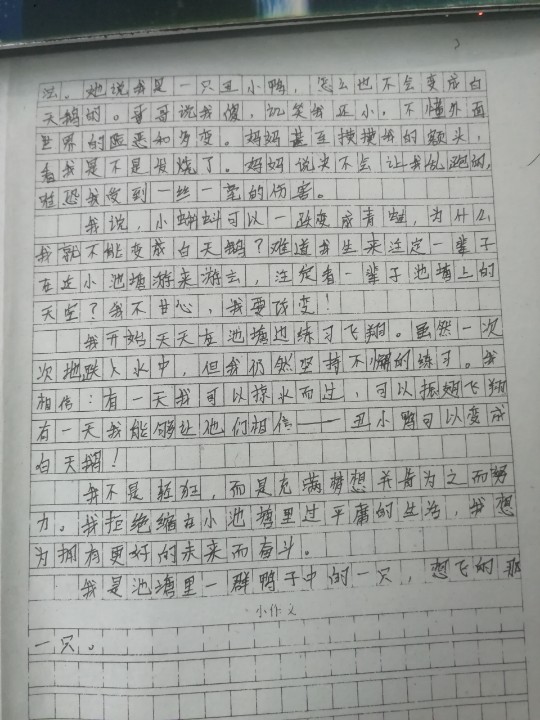 法。她说我是一只丑小鸭，怎么也不会变成白
天鹅的。哥哥说我傻，讥笑我还小，不懂外面
世界的险恶和多变。妈妈甚至摸摸我的额头，
看我是不是发烧了。妈妈说决不会让我乱跑的，
唯恐我受到一丝一毫的伤害。
我说，小蝌蚪可以一跃变成青蛙，为什么
我就不能变成白天鹅？难道我生来注定一辈子
在这小池塘游来游去，注定看一辈子池塘上的
天空？我不甘心，我要改变！
我开始天天在池塘边练习飞翔。虽然一次
次地跌入水中，但我仍然坚持不懈的练习。我
相信：有一天我可以掠水而过，可以振翅飞翔
有一天我能够让他们相信——丑小鸭可以变成
白天鹅！
我不是轻狂，而是充满梦想并肯为之而努
力。我拒绝缩在小池塘里过平庸的生活，我想
为拥有更好的未来而奋斗。
我是池塘里一群鸭子中的一只，想飞的那
小作文
一只。